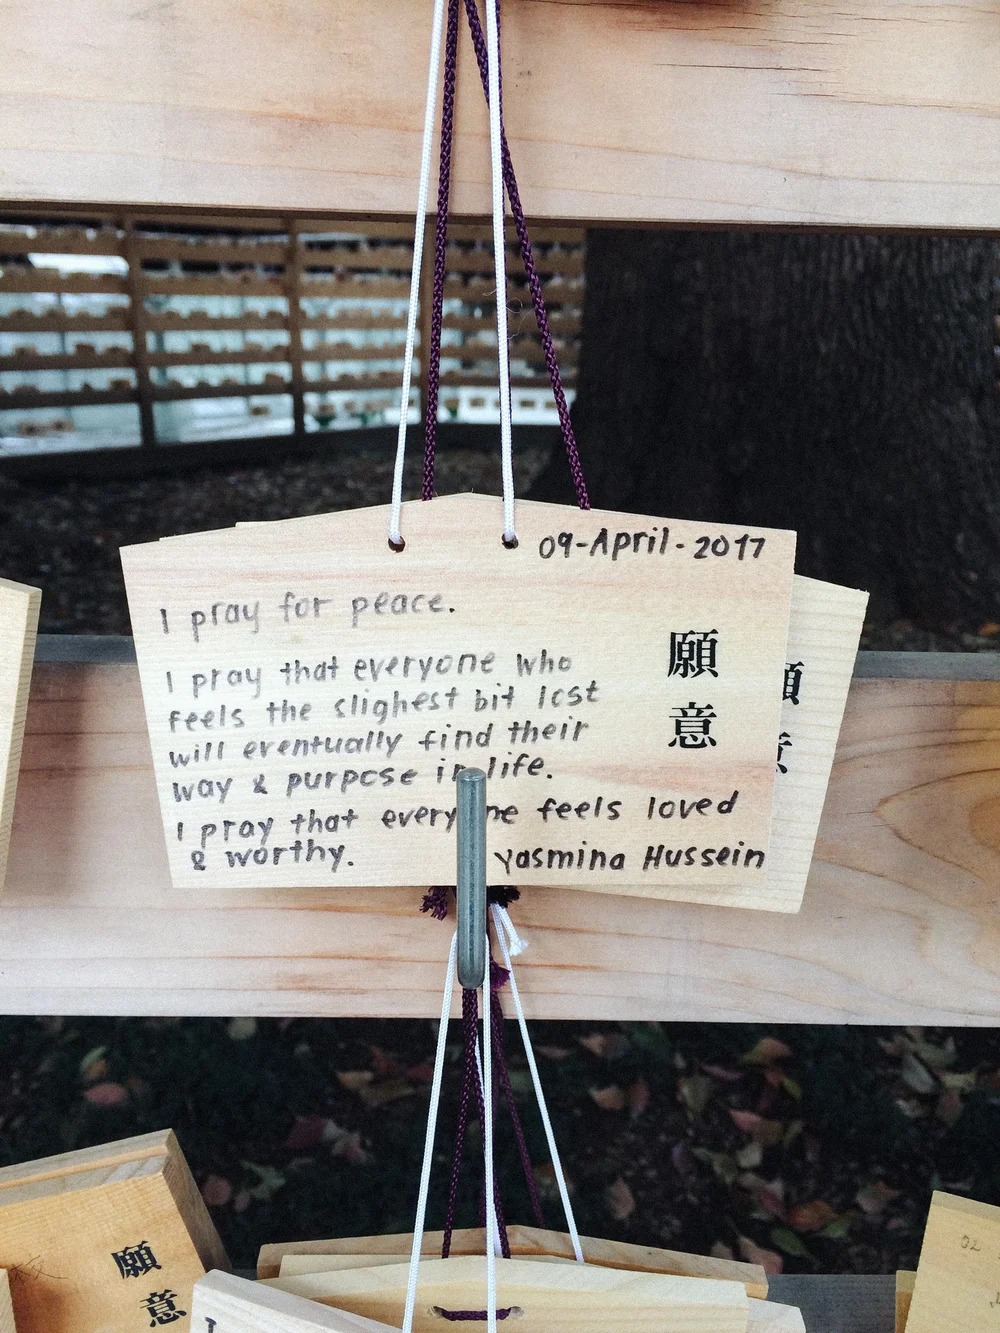 09-April-2017
I pray for peace.
I pray that everyone who
feels the slighest bit lost
will eventually find their
way & purpose in life.
I pray that everyone feels loved
& worthy.
Yasmina Hussein
願意
願意
願意